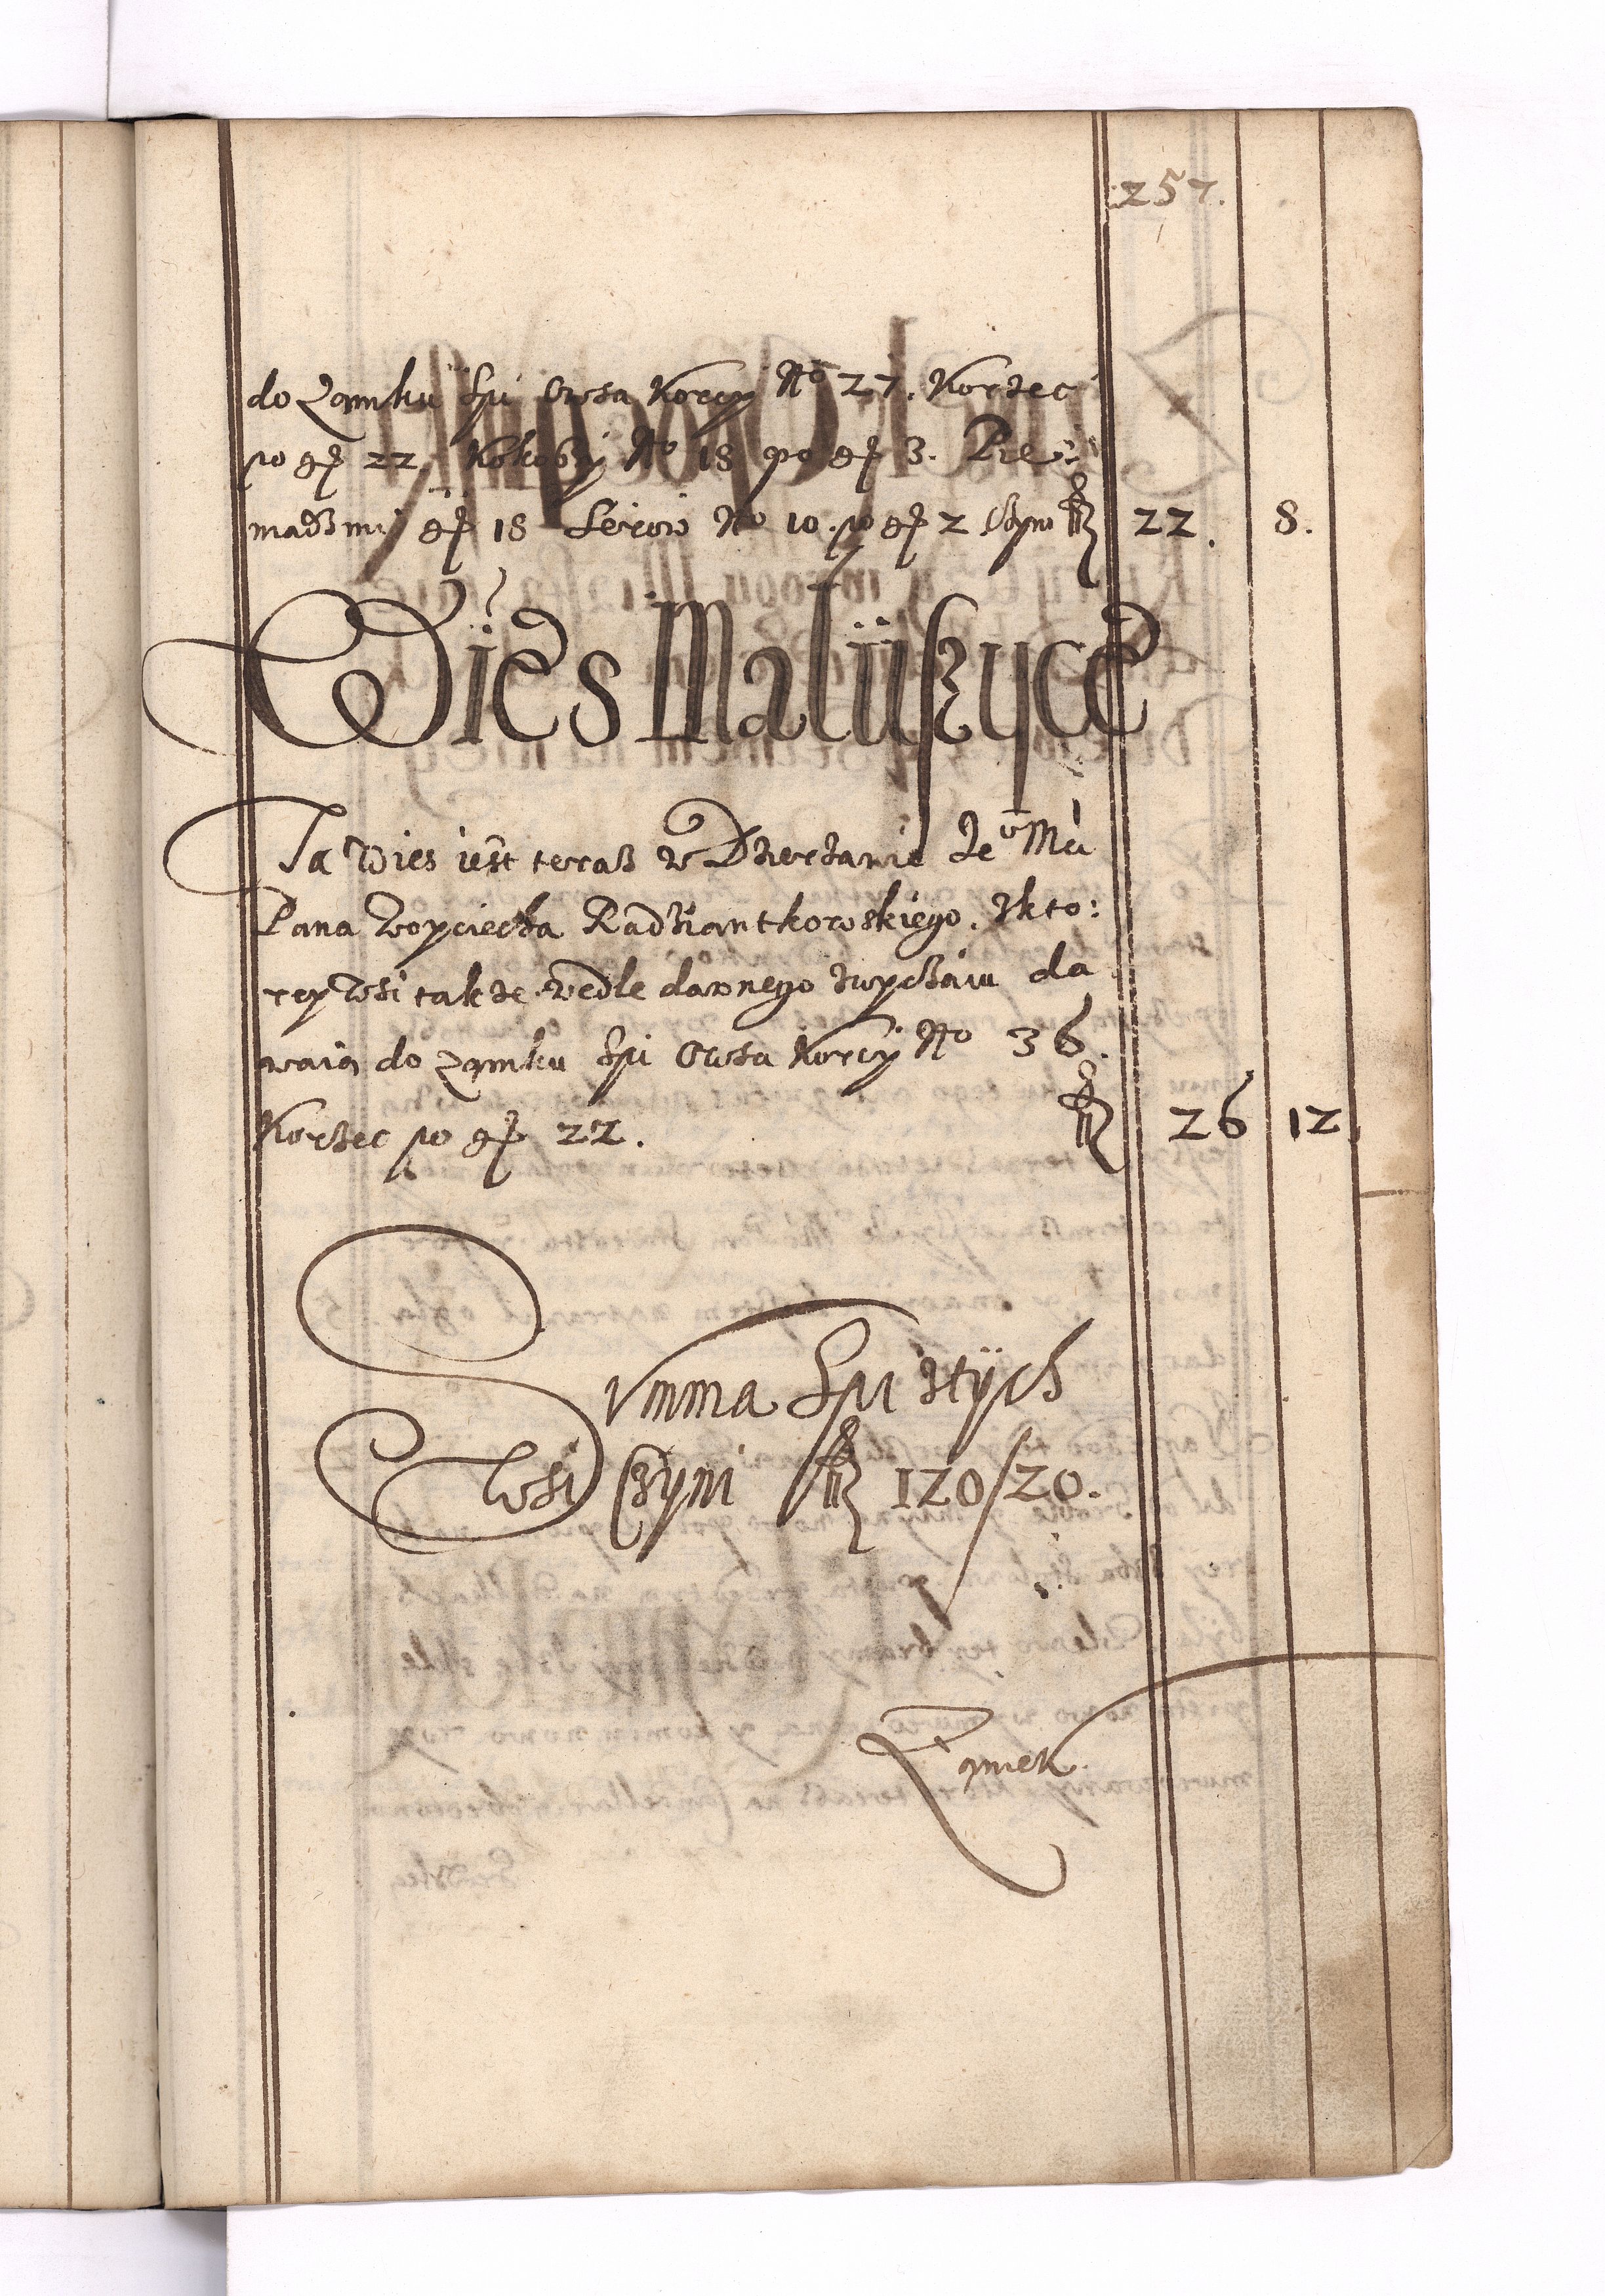 257.
do Zamku Spi Owsa Korcy No 27. Korzec
po gr 22. Kokoszy No 18 po gr 3. Pie:
niadzmi gr 18 Serow No 10. po gr 2 Czyni fl 22. 8.
Wies Maluszyce
Ta Wies iest terasz w Dzierzawie Je° Mci
Pana Woyciecha Radziantkowskiego. Zkto:
rey Wsi takze wedle dawnego zwyczaiu da
waią do Zamku Spi Owsa Korcy No 36.
Korzec po gr 22. fl 26 12
Summa Spi ztÿch
Wsi Czyni fl 120/20.
Zamek.